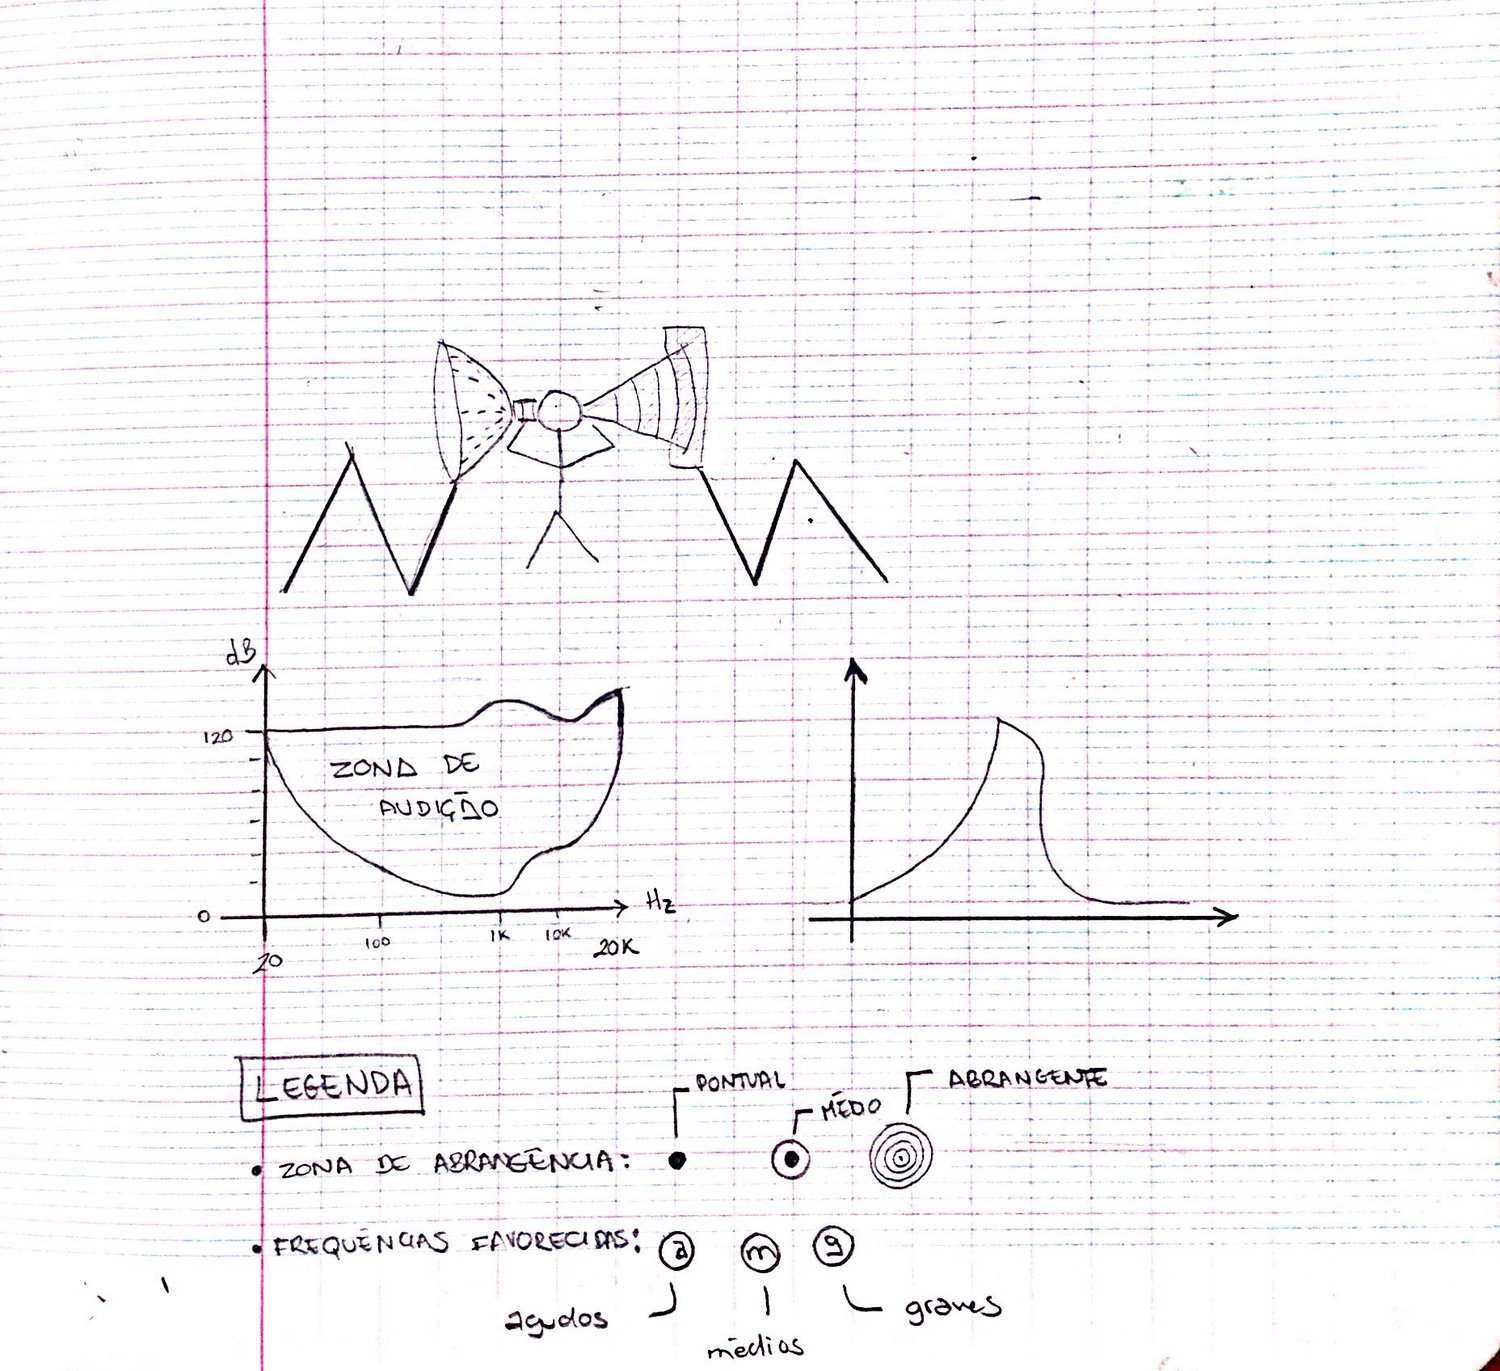 dB
120
ZONA DE
AUDIÇÃO
0
Hz
20
100
1K
10K
20K
LEGENDA
PONTUAL
MÉDIO
ABRANGENTE
• ZONA DE ABRANGÊNCIA:
• FREQUÊNCIAS FAVORECIDAS: a m g
agudos
médios
graves